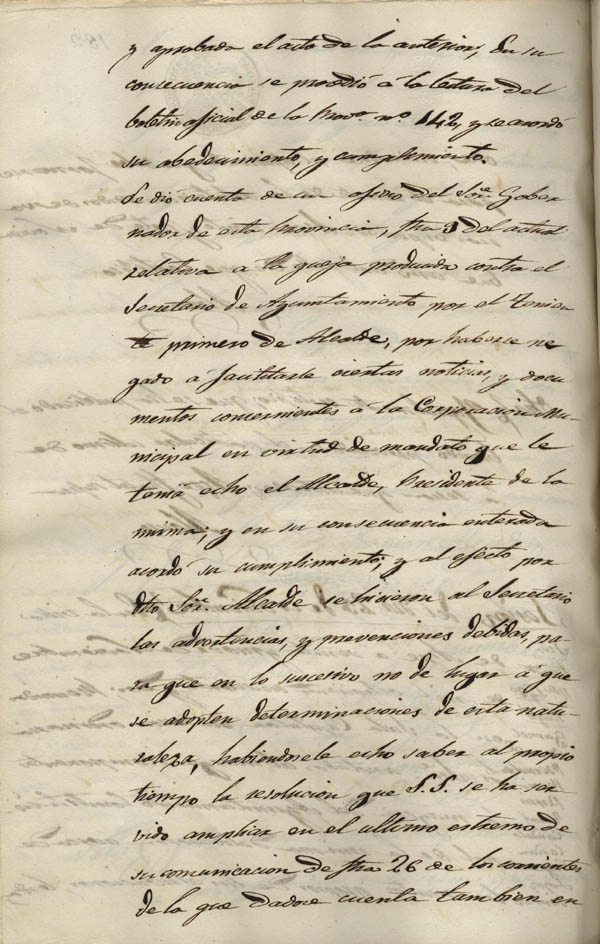 y aprobada el acto de la anterior; En su
consecuencia se prosedió á la lectura del
boletin oficial de la Prov.ª n.º 142, y se acordó
su abedecimiento, y cumplimiento.
Se dió cuenta de un oficio del Sor. Gober
nador de esta Provincia, fha 3 del actual
relativa a la queja producida contra el
Secretario de Ayuntamiento por el Tenien
te primero de Alcalde, por haberse ne
gado a facilitarle ciertas noticias, y docu
mentos concernientes á la Corporacion Mu-
nicipal en virtud de mandato que le
tenia echo el Alcalde, Presidente de la
misma; y en su consecuencia enterada
acordó su cumplimiento; y al efecto por
dho Sor. Alcalde se hicieron al Secretario
las advertencias, y prevenciones debidas, pa-
ra que en lo sucesivo no de lugar á que
se adopten determinaciones de esta natu-
raleza, habiendosele echo saber al propio
tiempo la resolucion que S.S. se ha ser
vido ampliar en el ultimo estremo de
su comunicacion de fha 26 de los corrientes
de la que dadose cuenta tambien en